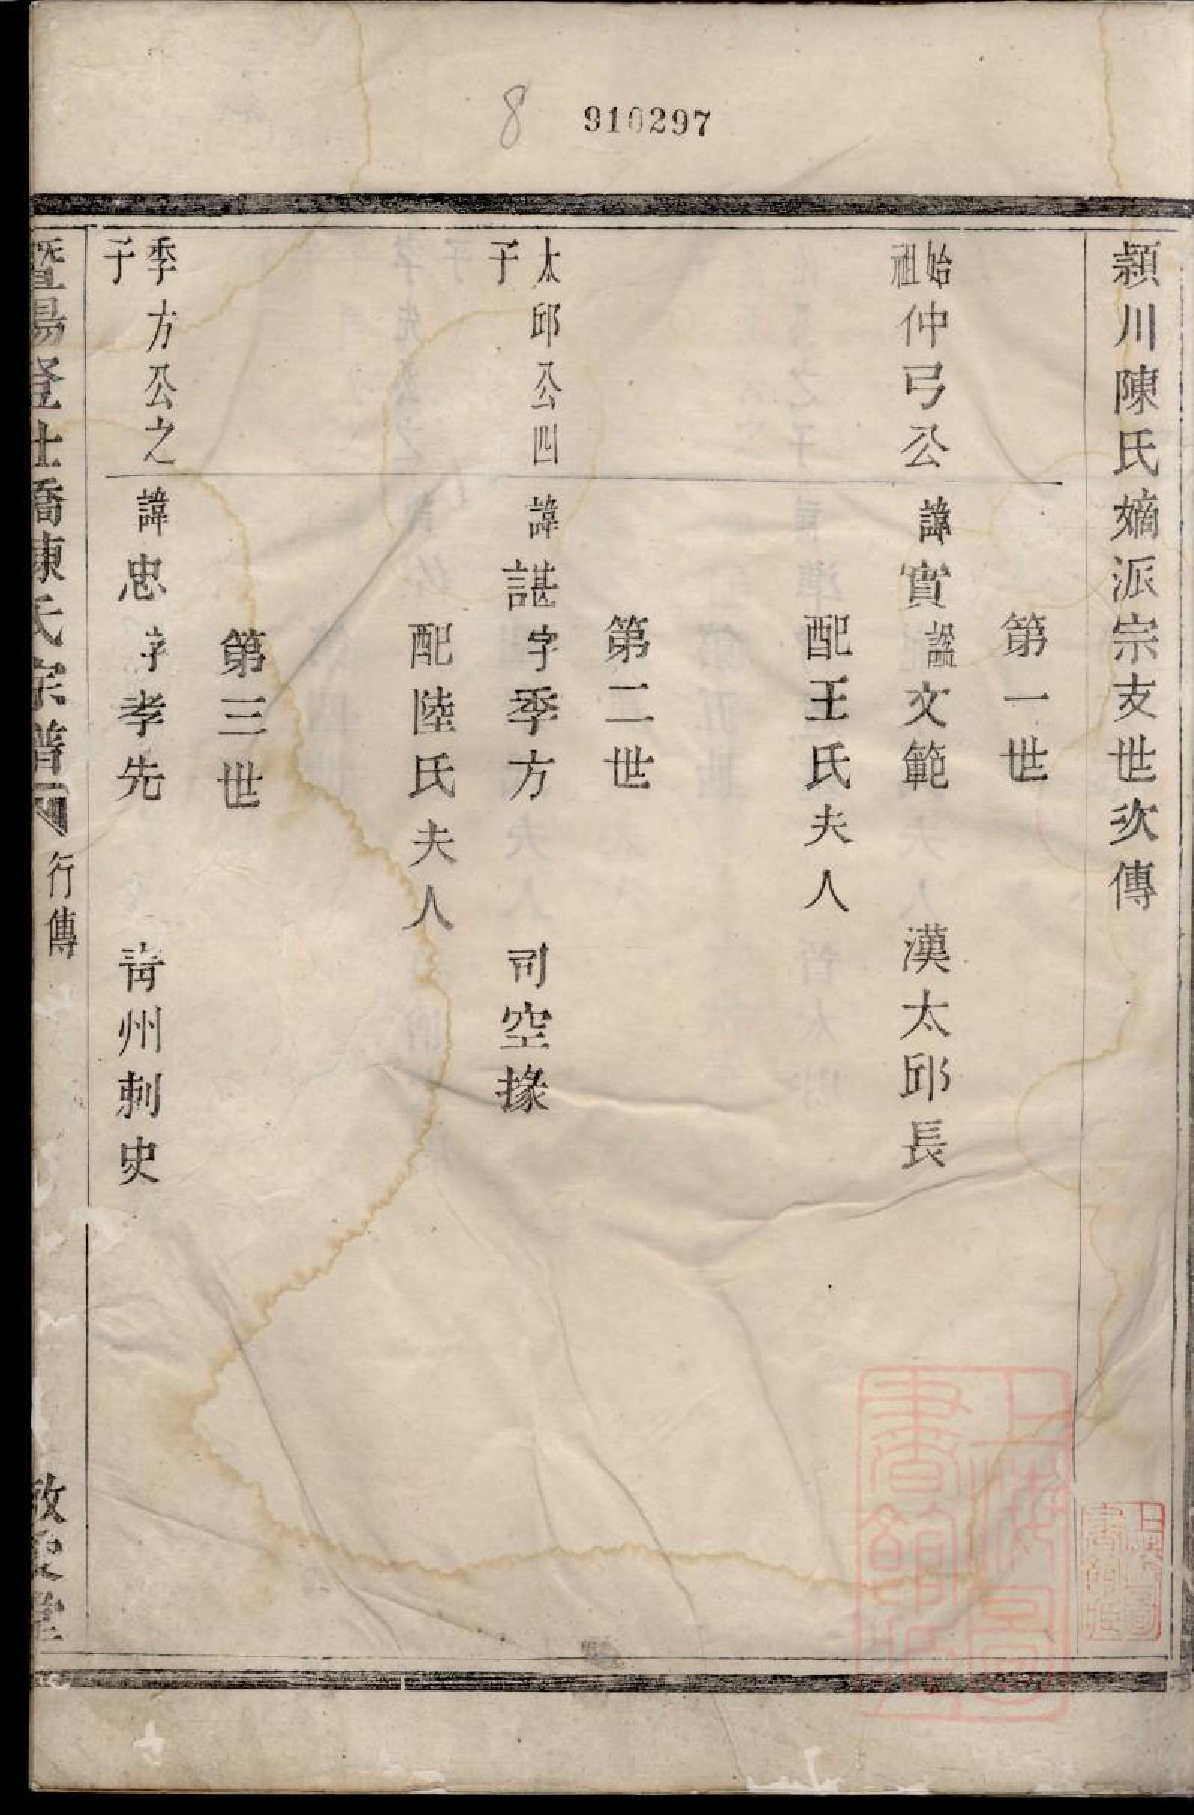 8 910297
潁川陳氏嫡派宗支世次傳
第一世
始祖仲弓公 諱寔諡文範 漢太邱長
配王氏夫人
第二世
太邱公四子 諱諶字季方 司空掾
配陸氏夫人
第三世
季方公之子 諱忠字孝先 青州刺史
暨陽登仕橋陳氏宗譜 行傳
上海圖書館藏
上海圖書館藏